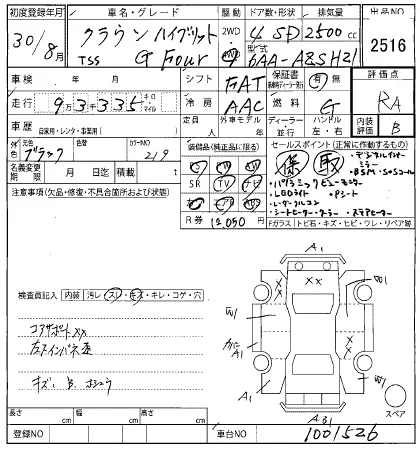 初度登録年月 車名・グレード 駆動 ドア数・形状 排気量 出品NO
30/8月 クラウンハイブリット 2WD 4 SD 2500cc 2516
TSS G Four 4WD 型式 6AA-AZSH21
車検 年 月 シフト FAT 保証書 有 無 燃料 G 評価点 RA
走行 9万3335 キロ マイル 冷房 AAC
車歴 自家用・レンタ・事業用( ) 定員 人 外車モデル ハンドル 左・右 内装評価 B
色 元色 ブラック 色替 カラーNO 219 装備品(純正品に限る) セールスポイント(正常に作動するもの)
名義変更期限 月 日迄 積載 t SR TV ナビ
・デジタルインナーミラー
・BSM・SOSコール
・パノラミックビューモニター
・LEDライト ・Pシート
・レーダークルコン
・シートヒーター・クーラー ・ステアヒーター
注意事項(欠品・修復・不具合箇所および状態) R券 12,050円 Fガラス トビ石・キズ・ヒビ・ワレ・リペア跡
A1
XX XX
B1
W1 W1
A1 A1
検査員記入 内装 汚レ・スレ・キズ・キレ・コゲ・穴
コアサポートXX
左インパネ歪
キズ、B、
スペア
長さ cm 幅 cm 高さ cm
登録NO 車台NO 1001526